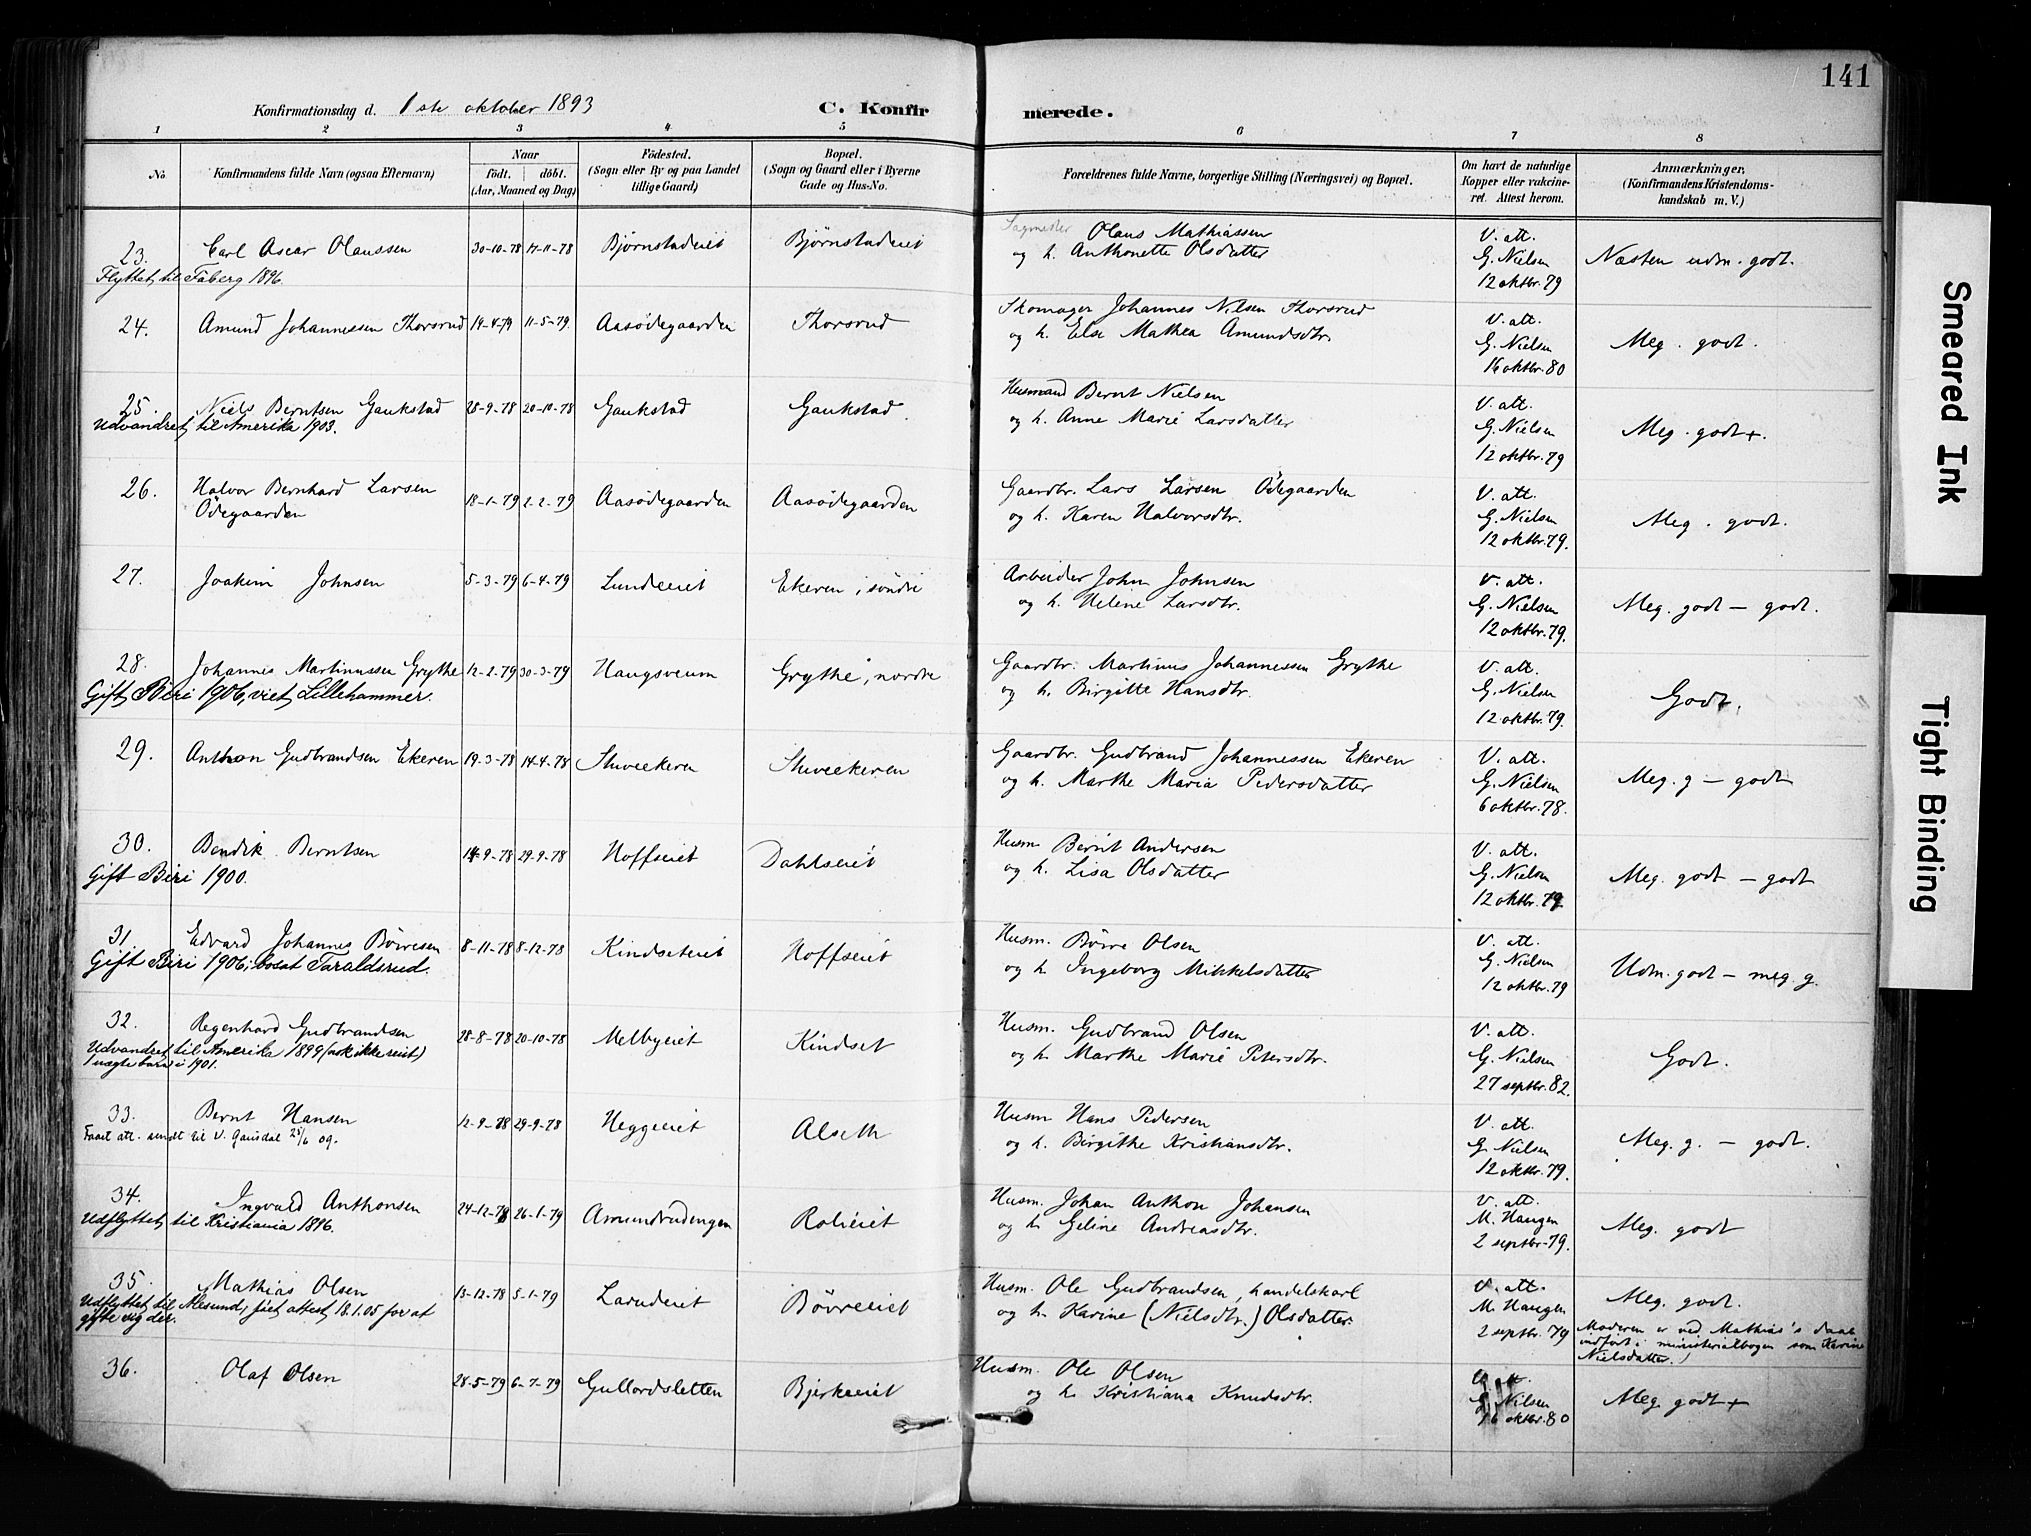 141
Konfirmationsdag d. 1ste oktober 1893 C. Konfirmerede.
1 2 3 4 5 6 7 8
No. Konfirmandens fulde Navn (ogsaa Efternavn) Naar født. døbt. (Aar, Maaned og Dag) Fødested. (Sogn eller By og paa Landet tillige Gaard) Bopæl. (Sogn og Gaard eller i Byerne Gade og Hus-No. Forældrenes fulde Navne, borgerlige Stilling (Næringsvei) og Bopæl. Om havt de naturlige Kopper eller vakcineret. Attest herom. Anmærkninger. (Konfirmandens Kristendomskundskab m. V.)
23. Carl Oscar Olaussen 30-10-78 17-11-78 Bjørnstadeiet Bjørnstadeiet Sagmester Olaus Mathiassen V. att.
og h. Anthonette Olsdatter G. Nielsen Næsten udm. godt.
Flyttet til Faaberg 1896. 12 oktbr. 79
24. Amund Johannessen Thorsrud 14-4-79 11-5-79. Aasødegaarden Thorsrud Skomager Johannes Nilsen Thorsrud V. att.
og h. Else Mathea Amundsdtr. G. Nielsen Meg. godt.
16 oktbr. 80
25. Niels Berntsen Gaukstad 28-9-78 20-10-78 Gaukstad Gaukstad. Husmand Bernt Nielsen V. att.
Udvandret til Amerika 1903. og h. Anne Marie Larsdatter G. Nielsen Meg. godt +.
12 oktbr. 79
26. Halvor Bernhard Larsen 18-1-79 2-2-79 Aasødegaarden Aasødegaarden Gaardbr. Lars Larsen Ødegaarden V. att.
Ødegaarden og h. Karen Halvorsdtr. G. Nielsen Meg. godt.
12 oktbr. 79.
27. Joakim Johnsen 5-3-79 6-4-79 Lundeeiet Ekeren, søndre Arbeider John Johnsen V. att.
og h. Helene Larsdtr. G. Nielsen Meg. godt – godt.
12 oktbr. 79.
28. Johannes Martinussen Grythe 12-2-79 30-3-79 Haugsveum Grythe, nordre Gaardbr. Martinus Johannessen Grythe V. att.
Gift, Biri 1906, viet, Lillehammer. og h. Birgitte Hansdtr. G. Nielsen Godt.
12 oktbr. 79.
29. Anthon Gudbrandsen Ekeren 19-3-78 14-4-78 Stuveekeren Stuveekeren Gaardbr. Gudbrand Johannessen Ekeren V. att.
og h. Marthe Maria Pedersdatter G. Nielsen Meg. g – godt
6 oktbr. 78.
30. Bendik Berntsen 14-9-78 29-9-78 Hoffseiet Dahlseiet Husm. Bernt Andersen V. att.
Gift Biri 1900. og h. Lisa Olsdatter G. Nielsen Meg. godt – godt
12 oktbr. 79.
31. Edvard Johannes Børresen 8-11-78 8-12-78 Kindseteiet Hoffseiet Husm. Børre Olsen V. att.
Gift Biri 1906; bosat Taraldsrud. og h. Ingeborg Mikkelsdatter G. Nielsen Udm. godt – meg. g.
12 oktbr. 79
32. Regenhard Gudbrandsen 28-8-78 20-10-78 Melbyeiet Kindset Husm. Gudbrand Olsen V. att.
Udvandret til Amerika 1899 (nok ikke reist) og h. Marthe Marie Petersdtr. G. Nielsen Godt.
1 uægte barn i 1901. 27 septbr. 82.
33. Bernt Hansen 12-9-78 29-9-78 Heggeeiet Alseth Husm Hans Pedersen V. att.
Faaet att. sendt til V. Gausdal 25/6 09. og h. Birgithe Kristiansdtr. G. Nielsen Meg. g. – godt.
12 oktbr. 79.
34. Ingvald Anthonsen 24-12-78 26-1-79 Amundrudengen Rolieiet Husm. Johan Anthon Johansen V. att.
Udflyttet til Kristiania 1896. og h. Geline Andreasdtr. M. Haugen Meg. godt
2 septbr. 79.
35. Mathias Olsen 13-12-78 5-1-79 Larudeiet Børreeiet Husm. Ole Gudbrandsen, handelskarl V. att.
Udflyttet til Alesund, fået attest 18.1.05 for at og h. Karine (Nielsdtr.) Olsdatter. M. Haugen Meg. godt.
gifte sig der. 2 septbr. 79 Moderen er ved Mathias's daab
indført i ministerialbogen som Karine
Nielsdatter.
36. Olaf Olsen 28-5-79 6-7-79 Gullordsletten Bjerkeeiet Husm. Ole Olsen V. att.
og h. Kristiana Knudsdtr. G. Nilsen Meg. godt +
16 oktbr. 80
Smeared Ink
Tight Binding